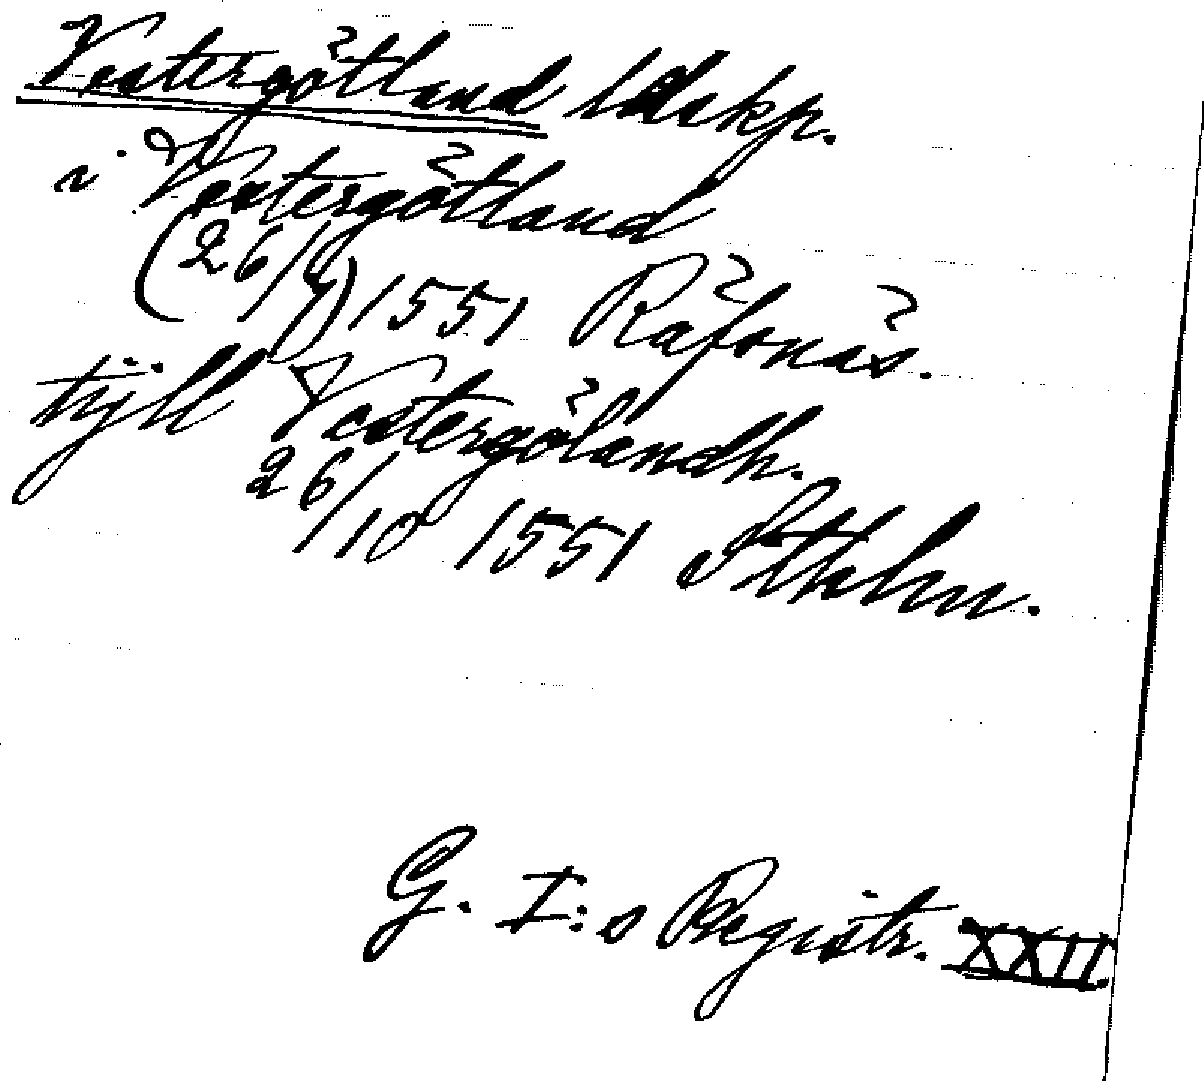 Vestergötland ldskp.
i Vestergötland
(26/9) 1551 Räfsnäs.
tijll Vestergölandh.
26/10 1551 Sthlm.
G. I:s Registr. XXII.